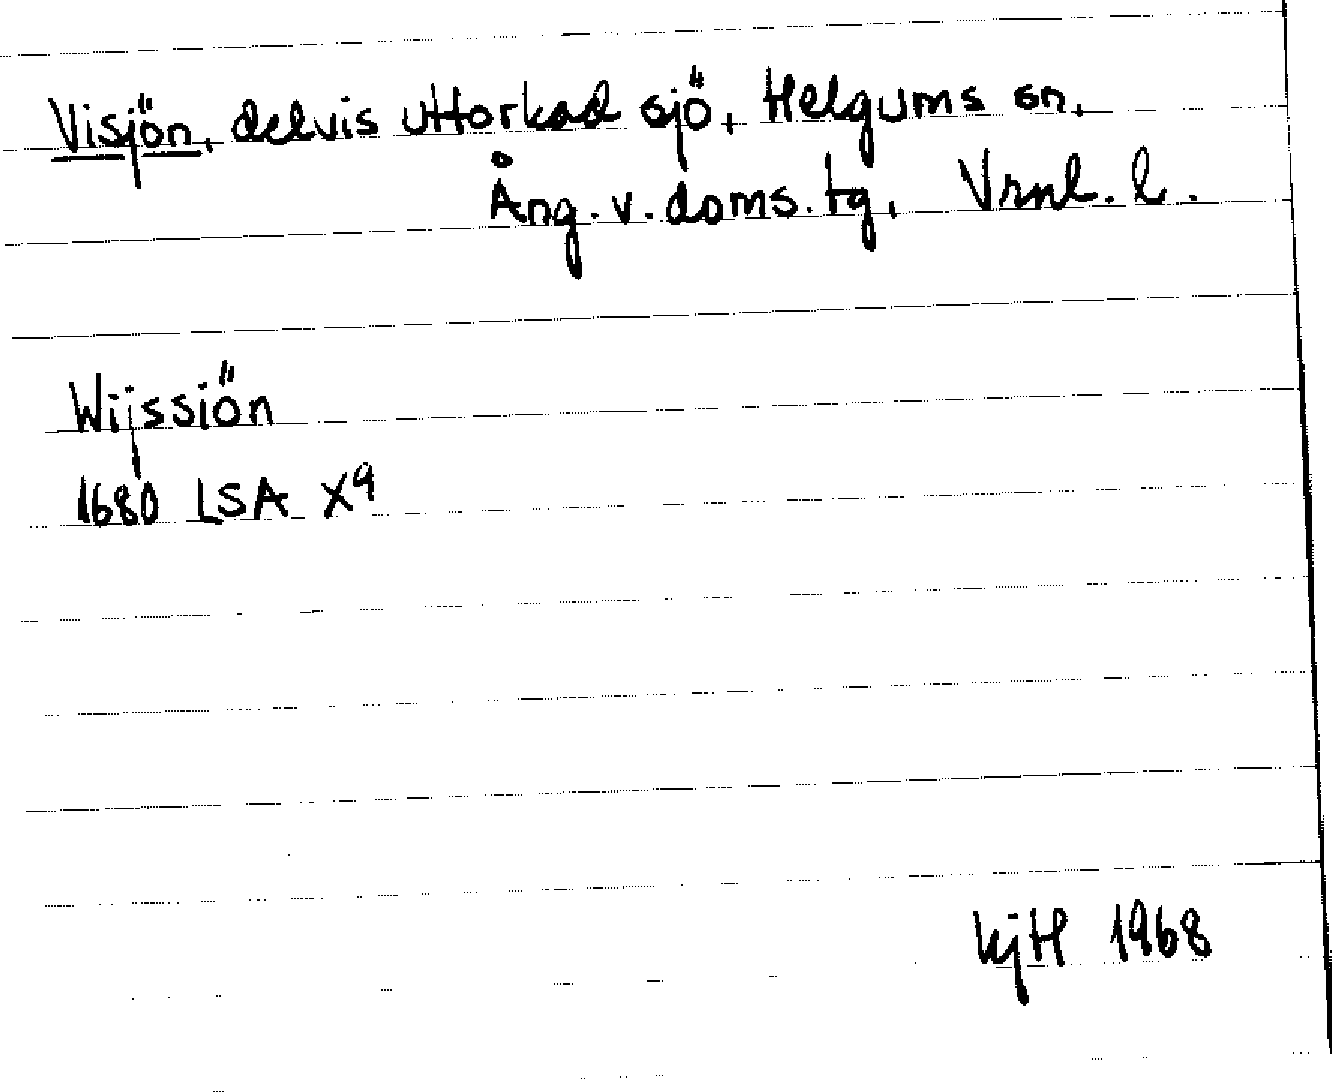 Visjön, delvis uttorkad sjö, Helgums sn,
Ång. v. doms. tg, Vrnl. l.
Wijssiön
1680 LSA X9
kjH 1968